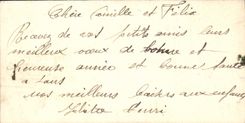 Chère Camille et Félix
Recevez de vos petits amis leurs
meilleurs vœux de bonne et
heureuse année et bonne santé
à tous
nos meilleurs baisers aux enfants
Henri